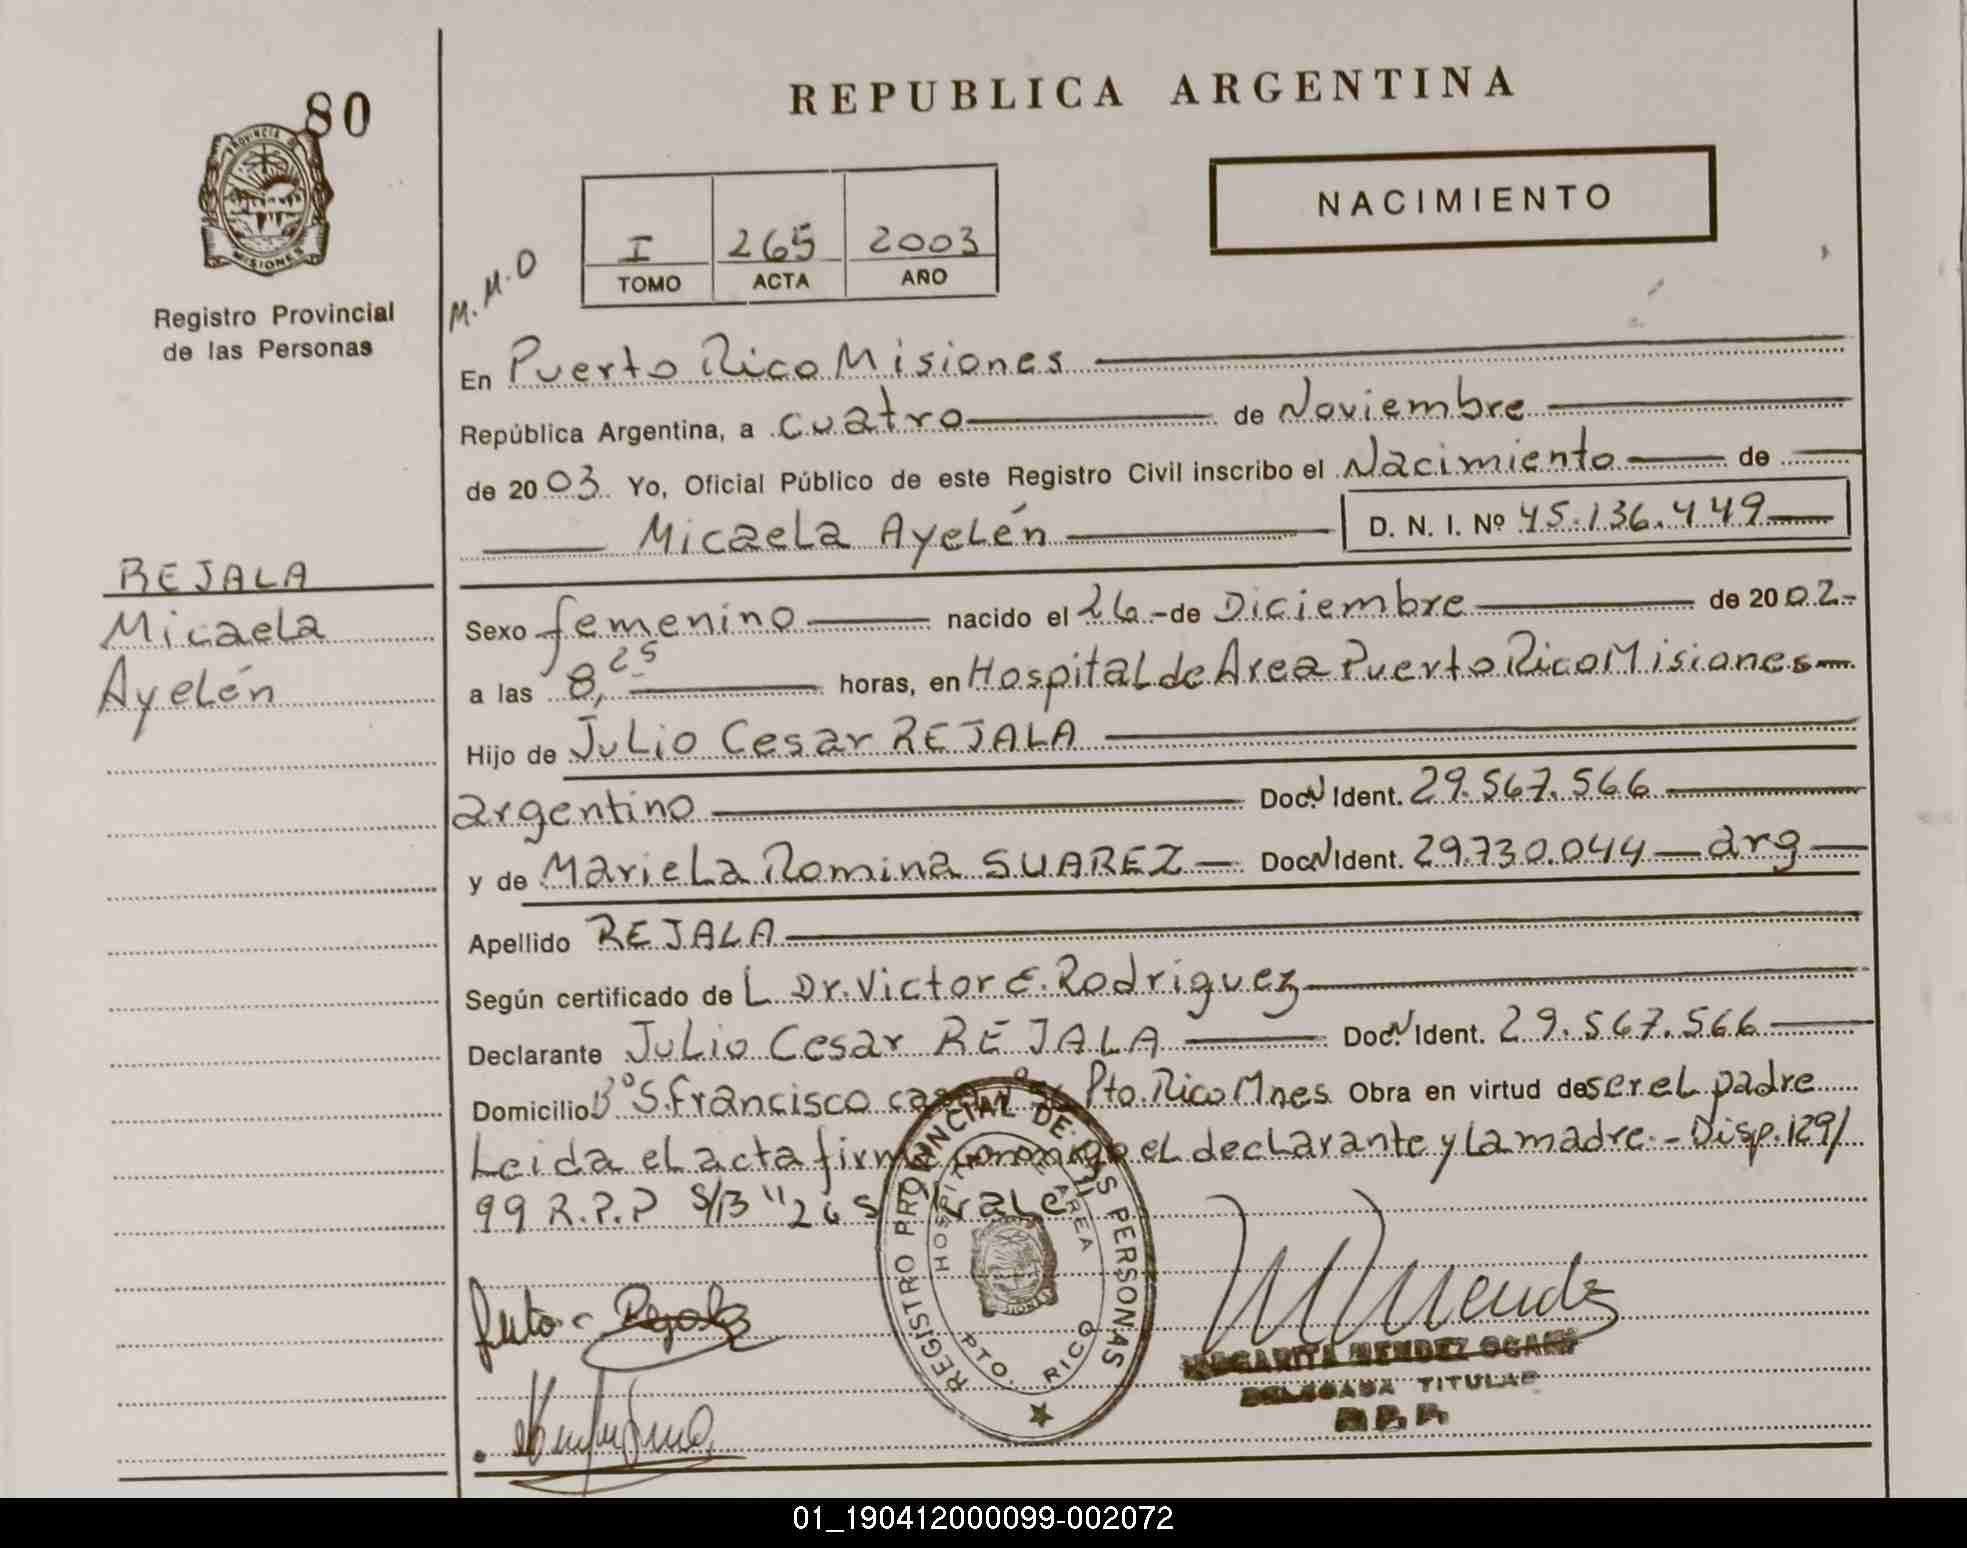 80
PROVINCIA DE
MISIONES
Registro Provincial
de las Personas
REPUBLICA ARGENTINA
NACIMIENTO
I 265 2003
TOMO ACTA AÑO
M.M.O
En Puerto Rico Misiones
República Argentina, a cuatro de Noviembre
de 2003 Yo, Oficial Público de este Registro Civil inscribo el Nacimiento de
Micaela Ayelén D. N. I. Nº 45.136.449
REJALA
Micaela
Ayelén
Sexo femenino nacido el 26-de Diciembre de 2002-
a las 8,25 horas, en Hospital de Area Puerto Rico Misiones
Hijo de Julio Cesar REJALA
argentino Doc. N Ident. 29.567.566
y de Mariela Romina SUAREZ Doc. N Ident. 29.730.044 - arg
Apellido REJALA
Según certificado de L Dr. Victor E. Rodriguez
Declarante Julio Cesar REJALA Doc. N Ident. 29.567.566
Domicilio Bº S. Francisco Pto. Rico Mnes Obra en virtud de ser el padre
Leida el acta el declarante y la madre.- Disp. 129/
99 R.P.P S/B "265" vale
REGISTRO PROVINCIAL DE LAS PERSONAS
HOSPITAL DE AREA
PTO. RICO
M Mendez
MARGARITA MENDEZ
DELEGADA TITULAR
R.P.P.
01_190412000099-002072